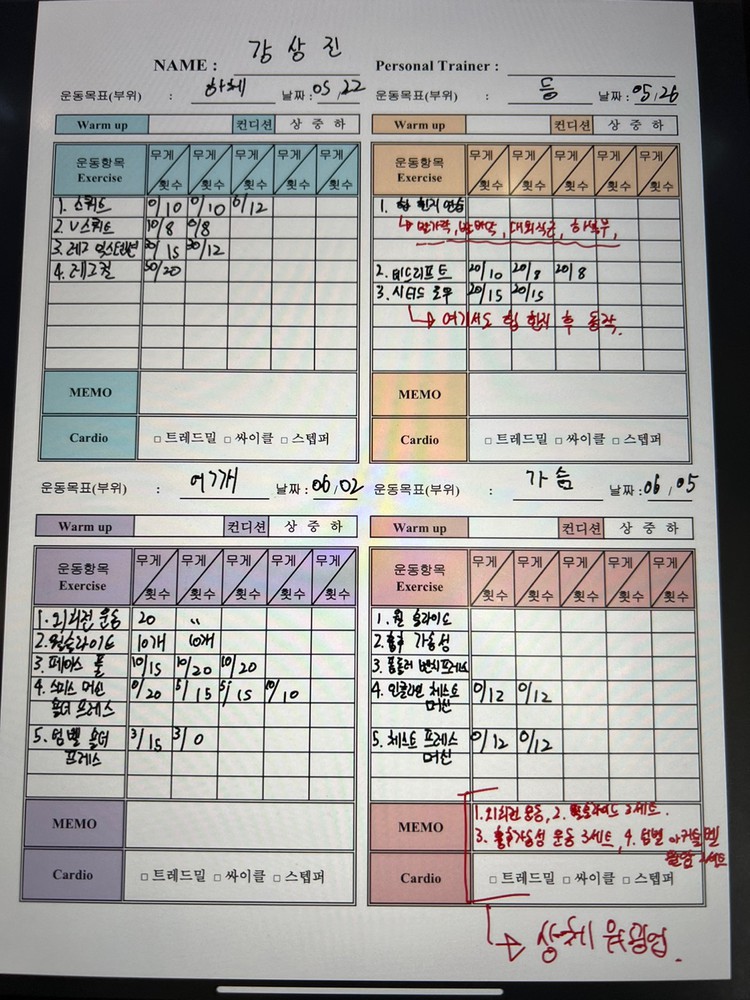 NAME : 강상진 Personal Trainer :
운동목표(부위) : 하체 날짜 : 05,22
Warm up 컨디션 상 중 하
운동항목 Exercise 무게/횟수 무게/횟수 무게/횟수 무게/횟수 무게/횟수
1. 스쿼트 0/10 0/10 0/12
2. V스쿼트 10/8 0/8
3. 레그 익스텐션 30/15 30/12
4. 레그컬 50/20
MEMO
Cardio □ 트레드밀 □ 싸이클 □ 스텝퍼
운동목표(부위) : 등 날짜 : 05,26
Warm up 컨디션 상 중 하
운동항목 Exercise 무게/횟수 무게/횟수 무게/횟수 무게/횟수 무게/횟수
1. 힙 힌지 연습
↳ 발가락, 발바닥, 대퇴직근, 하복부,
2. 데드리프트 20/10 20/8 20/8
3. 시티드 로우 20/15 20/15
↳ 여기서도 힙 힌지 후 동작.
MEMO
Cardio □ 트레드밀 □ 싸이클 □ 스텝퍼
운동목표(부위) : 어깨 날짜 : 06,02
Warm up 컨디션 상 중 하
운동항목 Exercise 무게/횟수 무게/횟수 무게/횟수 무게/횟수 무게/횟수
1. 외회전 운동 20 〃
2. 월슬라이드 10개 10개
3. 페이스 풀 10/15 10/20 10/20
4. 스미스 머신 0/20 5/15 5/15 10/10
숄더 프레스
5. 덤벨 숄더 3/15 3/0
프레스
MEMO
Cardio □ 트레드밀 □ 싸이클 □ 스텝퍼
운동목표(부위) : 가슴 날짜 : 06,05
Warm up 컨디션 상 중 하
운동항목 Exercise 무게/횟수 무게/횟수 무게/횟수 무게/횟수 무게/횟수
1. 월 슬라이드
2. 흉추 가동성
3. 폼롤러 벤치프레스
4. 인클라인 체스트 0/12 0/12
머신
5. 체스트 프레스 0/12 0/12
머신
MEMO
1. 외회전 운동, 2. 월슬라이드 2세트.
3. 흉추가동성 운동 3세트, 4. 덤벨
Cardio □ 트레드밀 □ 싸이클 □ 스텝퍼
↳ 상체 워밍업.